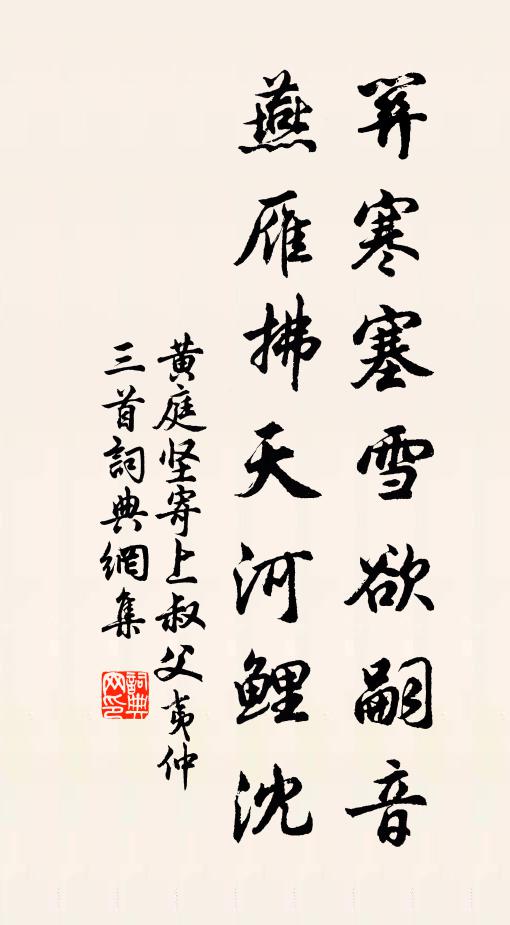 關寒塞雪欲嗣音
燕雁拂天河鯉沈
黃庭坚寄上叔父夷仲
三首詞典網集
詞典网印